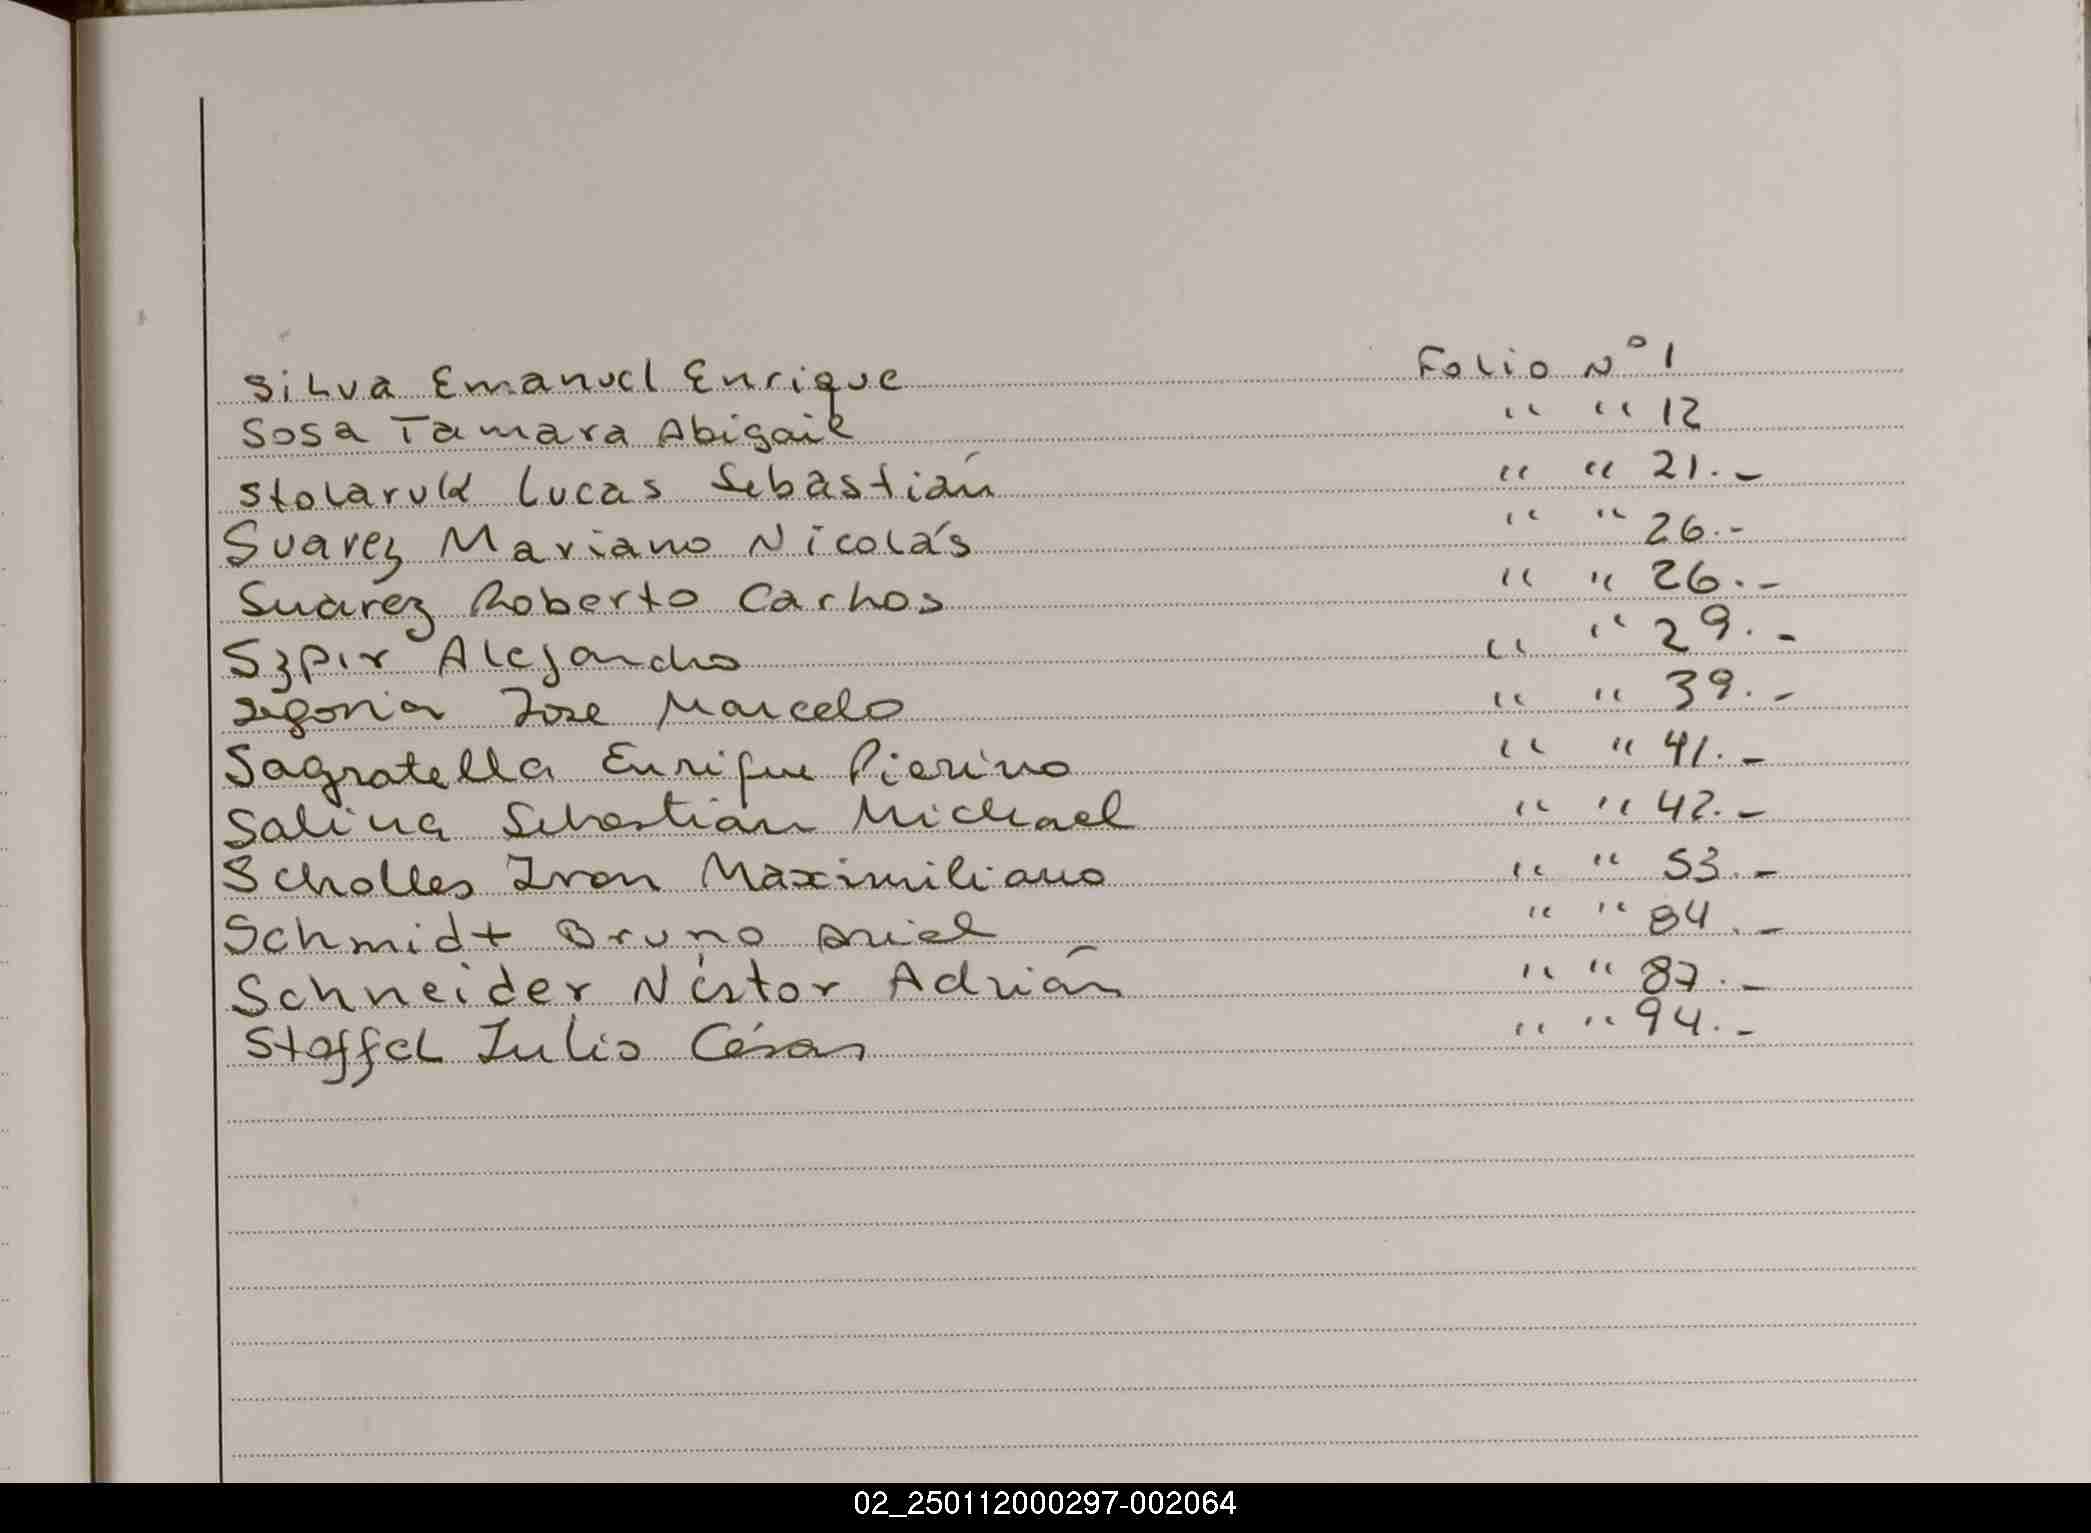 Silva Emanuel Enrique Folio N° 1
Sosa Tamara Abigail " " 12
Stolaruk Lucas Sebastián " " 21.-
Suarez Mariano Nicolás " " 26.-
Suarez Roberto Carlos " " 26.-
Szpir Alejandro " " 29.-
Segovia Jose Marcelo " " 39.-
Sagratella Enrique Pierino " " 41.-
Salina Sebastián Michael " " 42.-
Scholles Ivan Maximiliano " " 53.-
Schmidt Bruno Ariel " " 84.-
Schneider Néstor Adrián " " 87.-
Stoffel Julio César " " 94.-
02_250112000297-002064